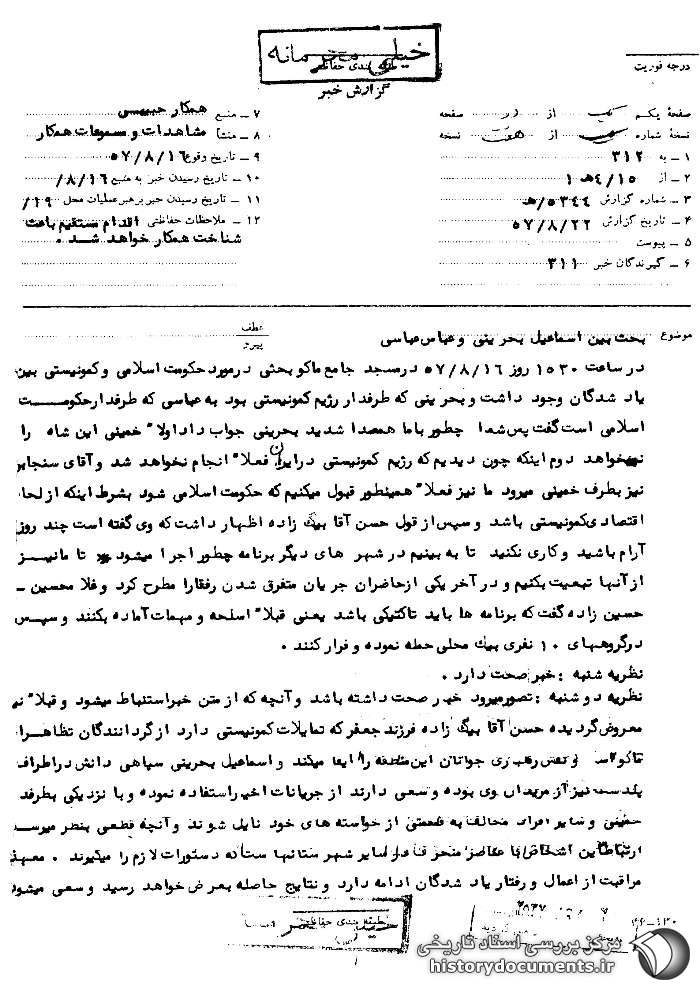 خیلی محرمانه
طبقه بندی حفاظتی
گزارش خبر
درجه فوریت
صفحهٔ یکم یک از صفحه
نسخهٔ شماره از نسخه
۱ ــ به ۳۱۲
۲ ــ از ۴/۱۵هـ ۱
۳ ــ شماره گزارش ۵۳۴۴/هـ
۴ ــ تاریخ گزارش ۵۷/۸/۲۲
۵ ــ پیوست
۶ ــ گیرندگان خبر ۳۱۱
۷ ــ منبع همکار حبیبی
۸ ــ منشأ مشاهدات و مسموعات همکار
۹ ــ تاریخ وقوع ۵۷/۸/۱۶
۱۰ ــ تاریخ رسیدن خبر به منبع ۸/۱۶/
۱۱ ــ تاریخ رسیدن خبر برهبر عملیات محل ۱۹/
۱۲ ــ ملاحظات حفاظتی اقدام مستقیم باعث
شناخت همکار خواهد شد .
موضوع بحث بین اسماعیل بحرینی و عباس عباسی
عطف
پیرو
در ساعت ۱۵۳۰ روز ۵۷/۸/۱۶ در مسجد جامع ماکو بحثی در مورد حکومت اسلامی و کمونیستی بین
یاد شدگان وجود داشت و بحرینی که طرفدار رژیم کمونیستی بود به عباسی که طرفدار حکومت
اسلامی است گفت پس شما چطور با ما همصدا شدید بحرینی جواب داد اولا" خمینی این شاه را
نمیخواهد دوم اینکه چون دیدیم که رژیم کمونیستی در ایران فعلا" انجام نخواهد شد و آقای سنجابی
نیز بطرف خمینی میرود ما نیز فعلا" همینطور قبول میکنیم که حکومت اسلامی شود بشرط اینکه از لحا
اقتصادی کمونیستی باشد و سپس از قول حسن آقا بیگ زاده اظهار داشت که وی گفته است چند روز
آرام باشید و کاری نکنید تا به بینیم در شهر های دیگر برنامه چطور اجرا میشود تا ما نیز
از آنها تبعیت بکنیم و در آخر یکی از حاضران جریان متفرق شدن رفقا را مطرح کرد و غلامحسین ــ
حسین زاده گفت که برنامه ها باید تاکتیکی باشد یعنی قبلا" اسلحه و مهمات آماده بکنند و سپس
در گروههای ۱۰ نفری بیک محلی حمله نموده و فرار کنند .
نظریه شنبه : خبر صحت دارد .
نظریه دوشنبه : تصور میرود خبر صحت داشته باشد و آنچه که از متن خبر استنباط میشود و قبلا" نیز
معروض گردیده حسن آقا بیگ زاده فرزند جعفر که تمایلات کمونیستی دارد از گردانندگان تظاهرات
ماکو و نقش رهبری جوانان این منطقه را ایفا میکند و اسماعیل بحرینی سپاهی دانش در اطراف
نیز از مریدان وی بوده و سعی دارند از جریانات اخیر استفاده نموده و با نزدیکی بطرفد
خمینی و سایر افراد مخالف به قسمتی از خواسته های خود نایل شوند و آنچه قطعی بنظر میرسد
ارتباط این اشخاص با عناصر منحرف در سایر شهرستانها دستورات لازم را میگیرند . معهذ
مراقبت از اعمال و رفتار یاد شدگان ادامه دارد و نتایج حاصله بعرض خواهد رسید و سعی میشود
طبقه بندی حفاظتی
مرکز بررسی اسناد تاریخی
historydocuments.ir